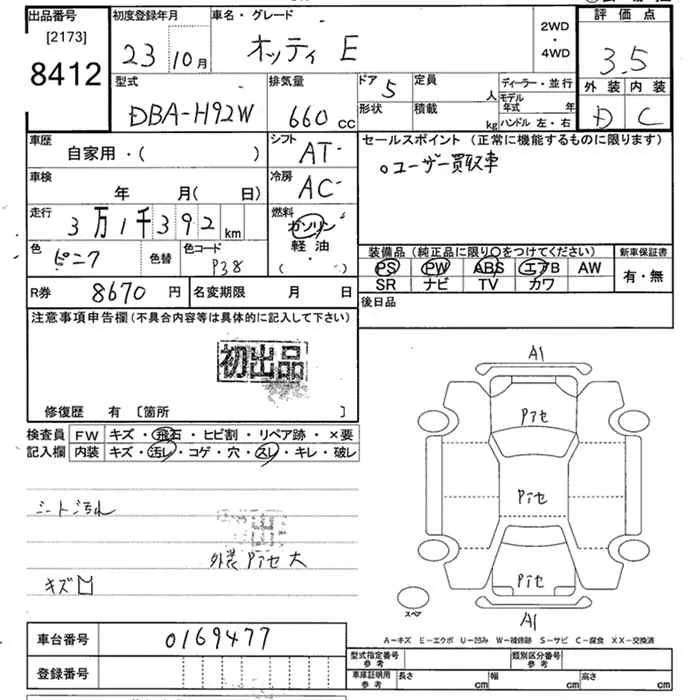 出品番号
[2173]
8412
初度登録年月
23 10月
車名・グレード
オッティ E
2WD
・
4WD
評価点
3.5
外装 内装
D C
型式
DBA-H92W
排気量
660 CC
ドア 5
定員 人
形状
積載 kg
ディーラー・並行
モデル年式 年
ハンドル 左・右
車歴
自家用・( )
シフト
AT-
セールスポイント (正常に機能するものに限ります)
○ユーザー買取車
車検
年 月( 日)
冷房
AC-
走行
3万1千392 km
燃料
ガソリン
軽油
( ・ )
色
ピンク
色替
色コード
P38
装備品 (純正品に限り○をつけてください)
新車保証書
PS PW ABS エアB AW
SR ナビ TV カワ
有・無
R券 8670 円
名変期限 月 日
後日品
注意事項申告欄(不具合内容等は具体的に記入して下さい)
初出品
修復歴 有 〔箇所 〕
検査員
記入欄
FW キズ・飛石・ヒビ割・リペア跡・×要
内装 キズ・汚レ・コゲ・穴・スレ・キレ・破レ
シート汚れ
外装 Pイセ 大
キズ
A1
Pイセ
Pイセ
Pイセ
A1
スペア
A-キズ E-エクボ U-凹み W-補修跡 S-サビ C-腐食 XX-交換済
車台番号 0169477
登録番号
型式指定番号
参考
類別区分番号
参考
車庫証明用
参考
長さ cm
幅 cm
高さ cm